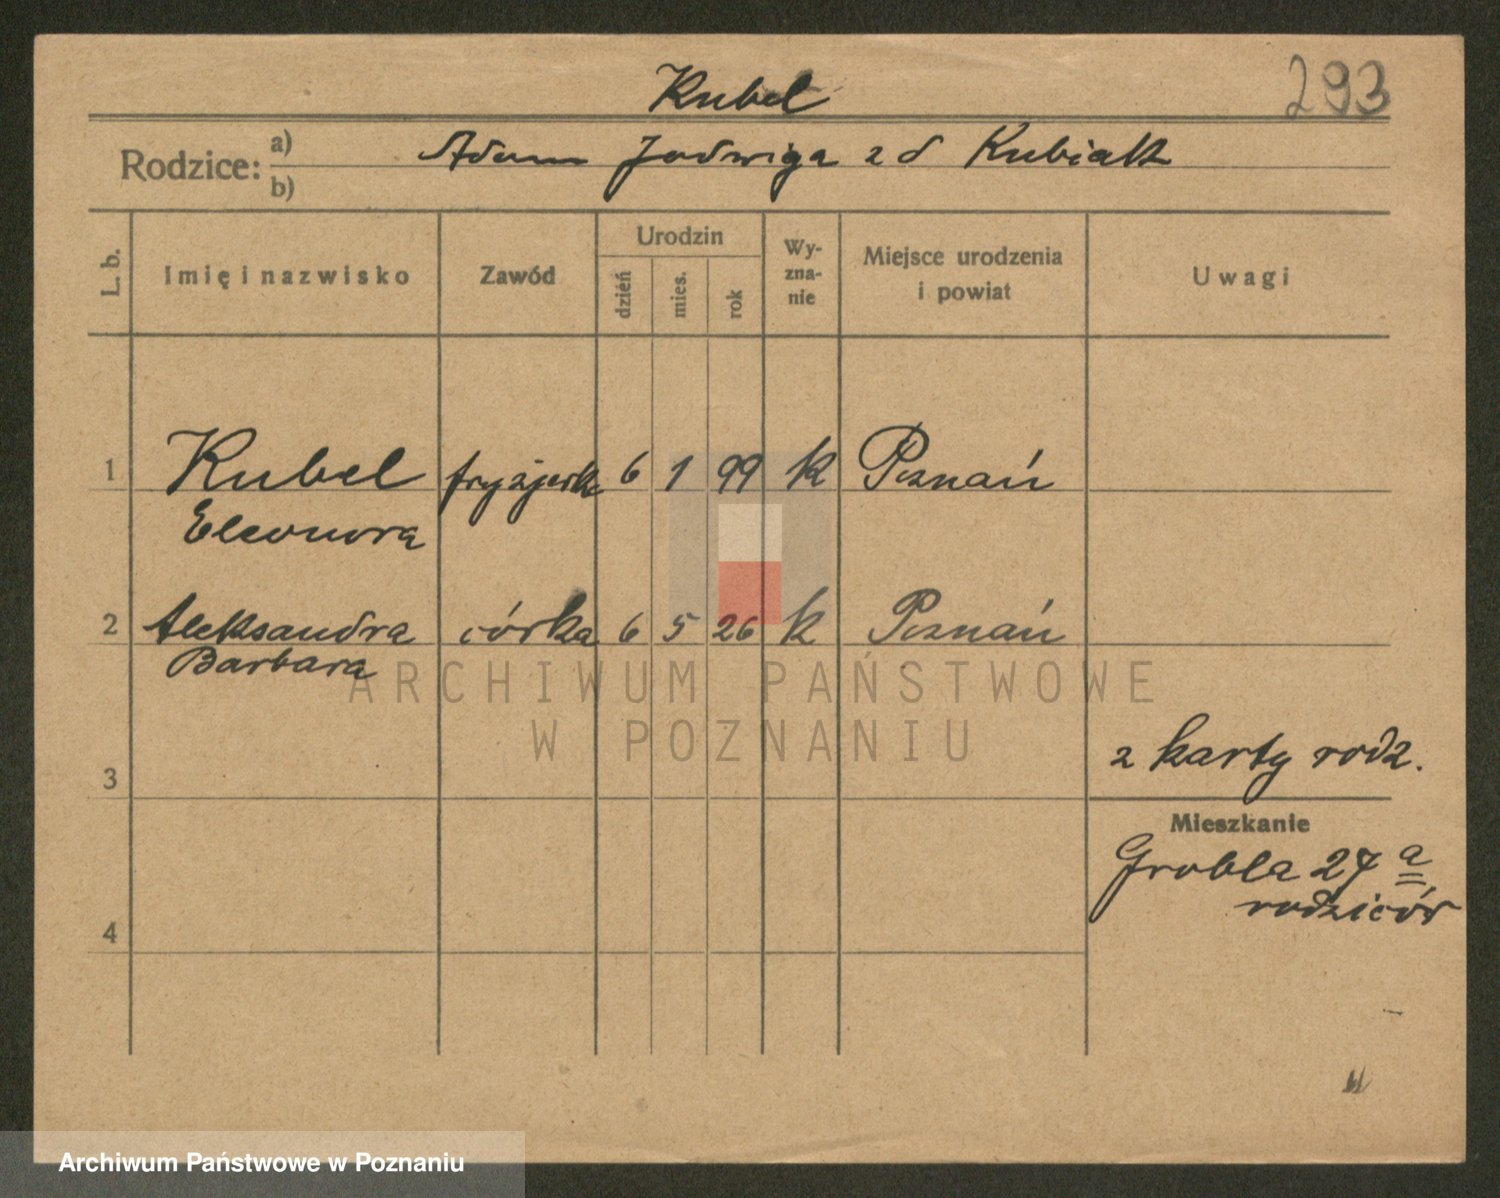 293
Kubel
Rodzice: a) Adam Jadwiga z d Kubiak
b)
L. b. Imię i nazwisko Zawód Urodzin dzień mies. rok Wy-zna-nie Miejsce urodzenia i powiat Uwagi
1 Kubel fryzjerka 6 1 99 k Poznań
Eleonora
2 Aleksandra córka 6 5 26 k Poznań
Barbara
ARCHIWUM PAŃSTWOWE
W POZNANIU
z karty rodz.
3
Mieszkanie
Grobla 27 a
rodziców
4
Archiwum Państwowe w Poznaniu